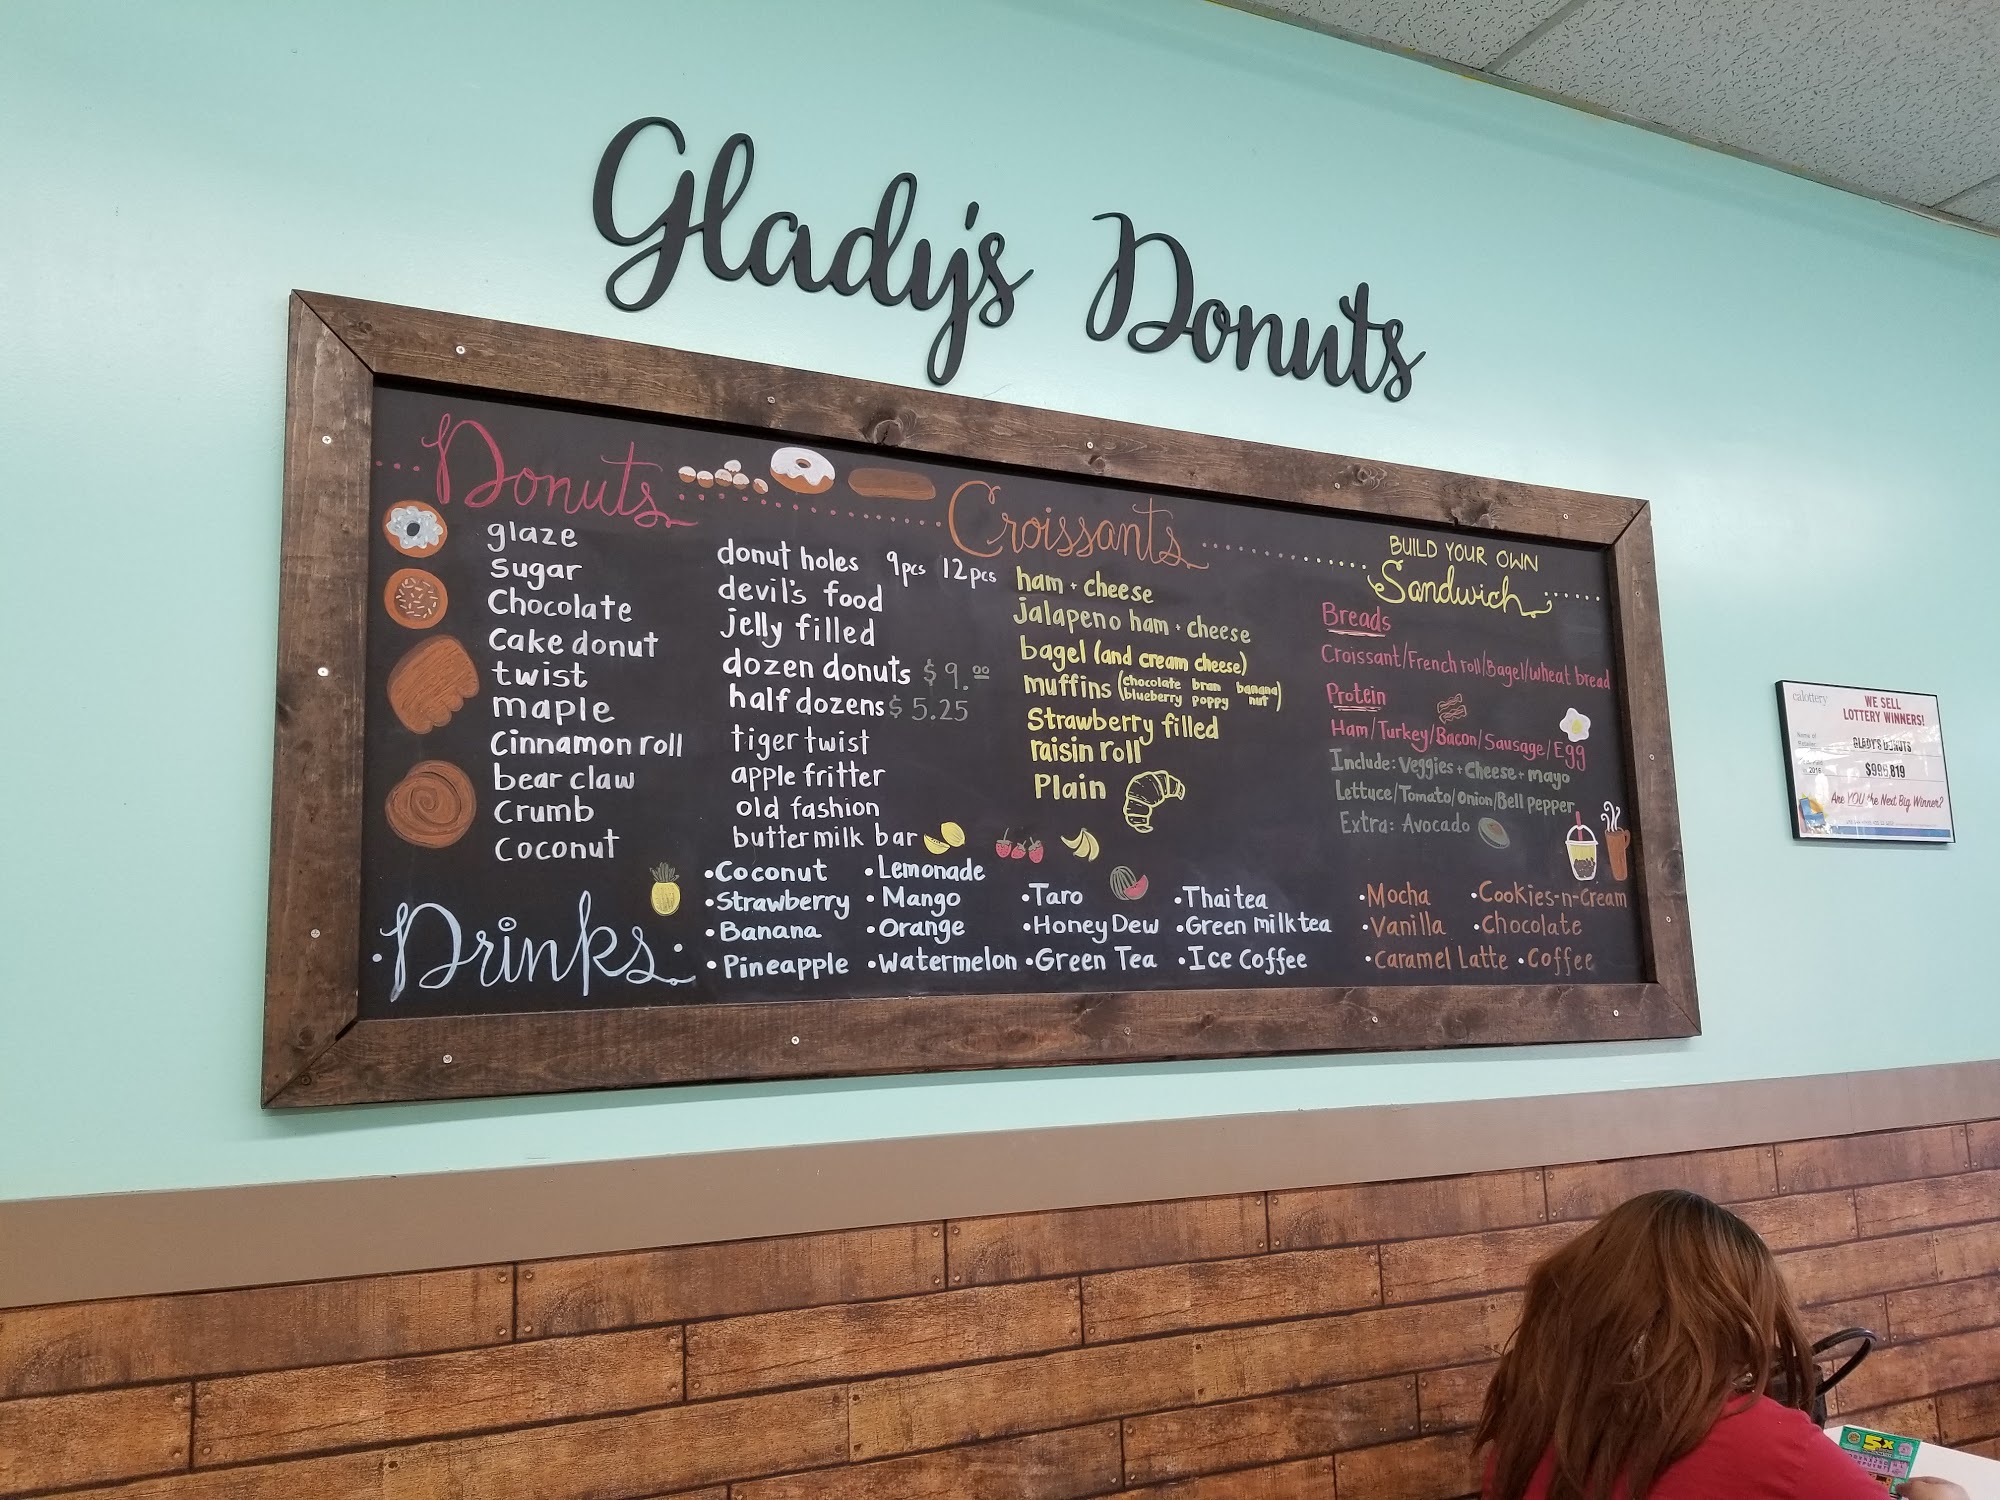 Glady's Donuts
Donuts
glaze
Sugar
Chocolate
Cake donut
twist
maple
Cinnamon roll
bear claw
Crumb
Coconut
donut holes 9pcs 12pcs
devil's food
jelly filled
dozen donuts $9.00
half dozens $5.25
tiger twist
apple fritter
old fashion
buttermilk bar
Croissants
ham + cheese
jalapeno ham + cheese
bagel (and cream cheese)
muffins (chocolate bran banana
blueberry poppy nut)
Strawberry filled
raisin roll
Plain
BUILD YOUR OWN
Sandwich
Breads
Croissant/French roll/Bagel/wheat bread
Protein
Ham/Turkey/Bacon/Sausage/Egg
Include: Veggies + Cheese + mayo
Lettuce/Tomato/Onion/Bell pepper
Extra: Avocado
Drinks
•Coconut •Lemonade
•Strawberry •Mango •Taro •Thai tea •Mocha •Cookies-n-Cream
•Banana •Orange •Honey Dew •Green milk tea •Vanilla •Chocolate
•Pineapple •Watermelon •Green Tea •Ice Coffee •Caramel Latte •Coffee
calottery
WE SELL
LOTTERY WINNERS!
Name of
Retailer
GLADY'S DONUTS
2016
$996,819
Are YOU the Next Big Winner?
5X